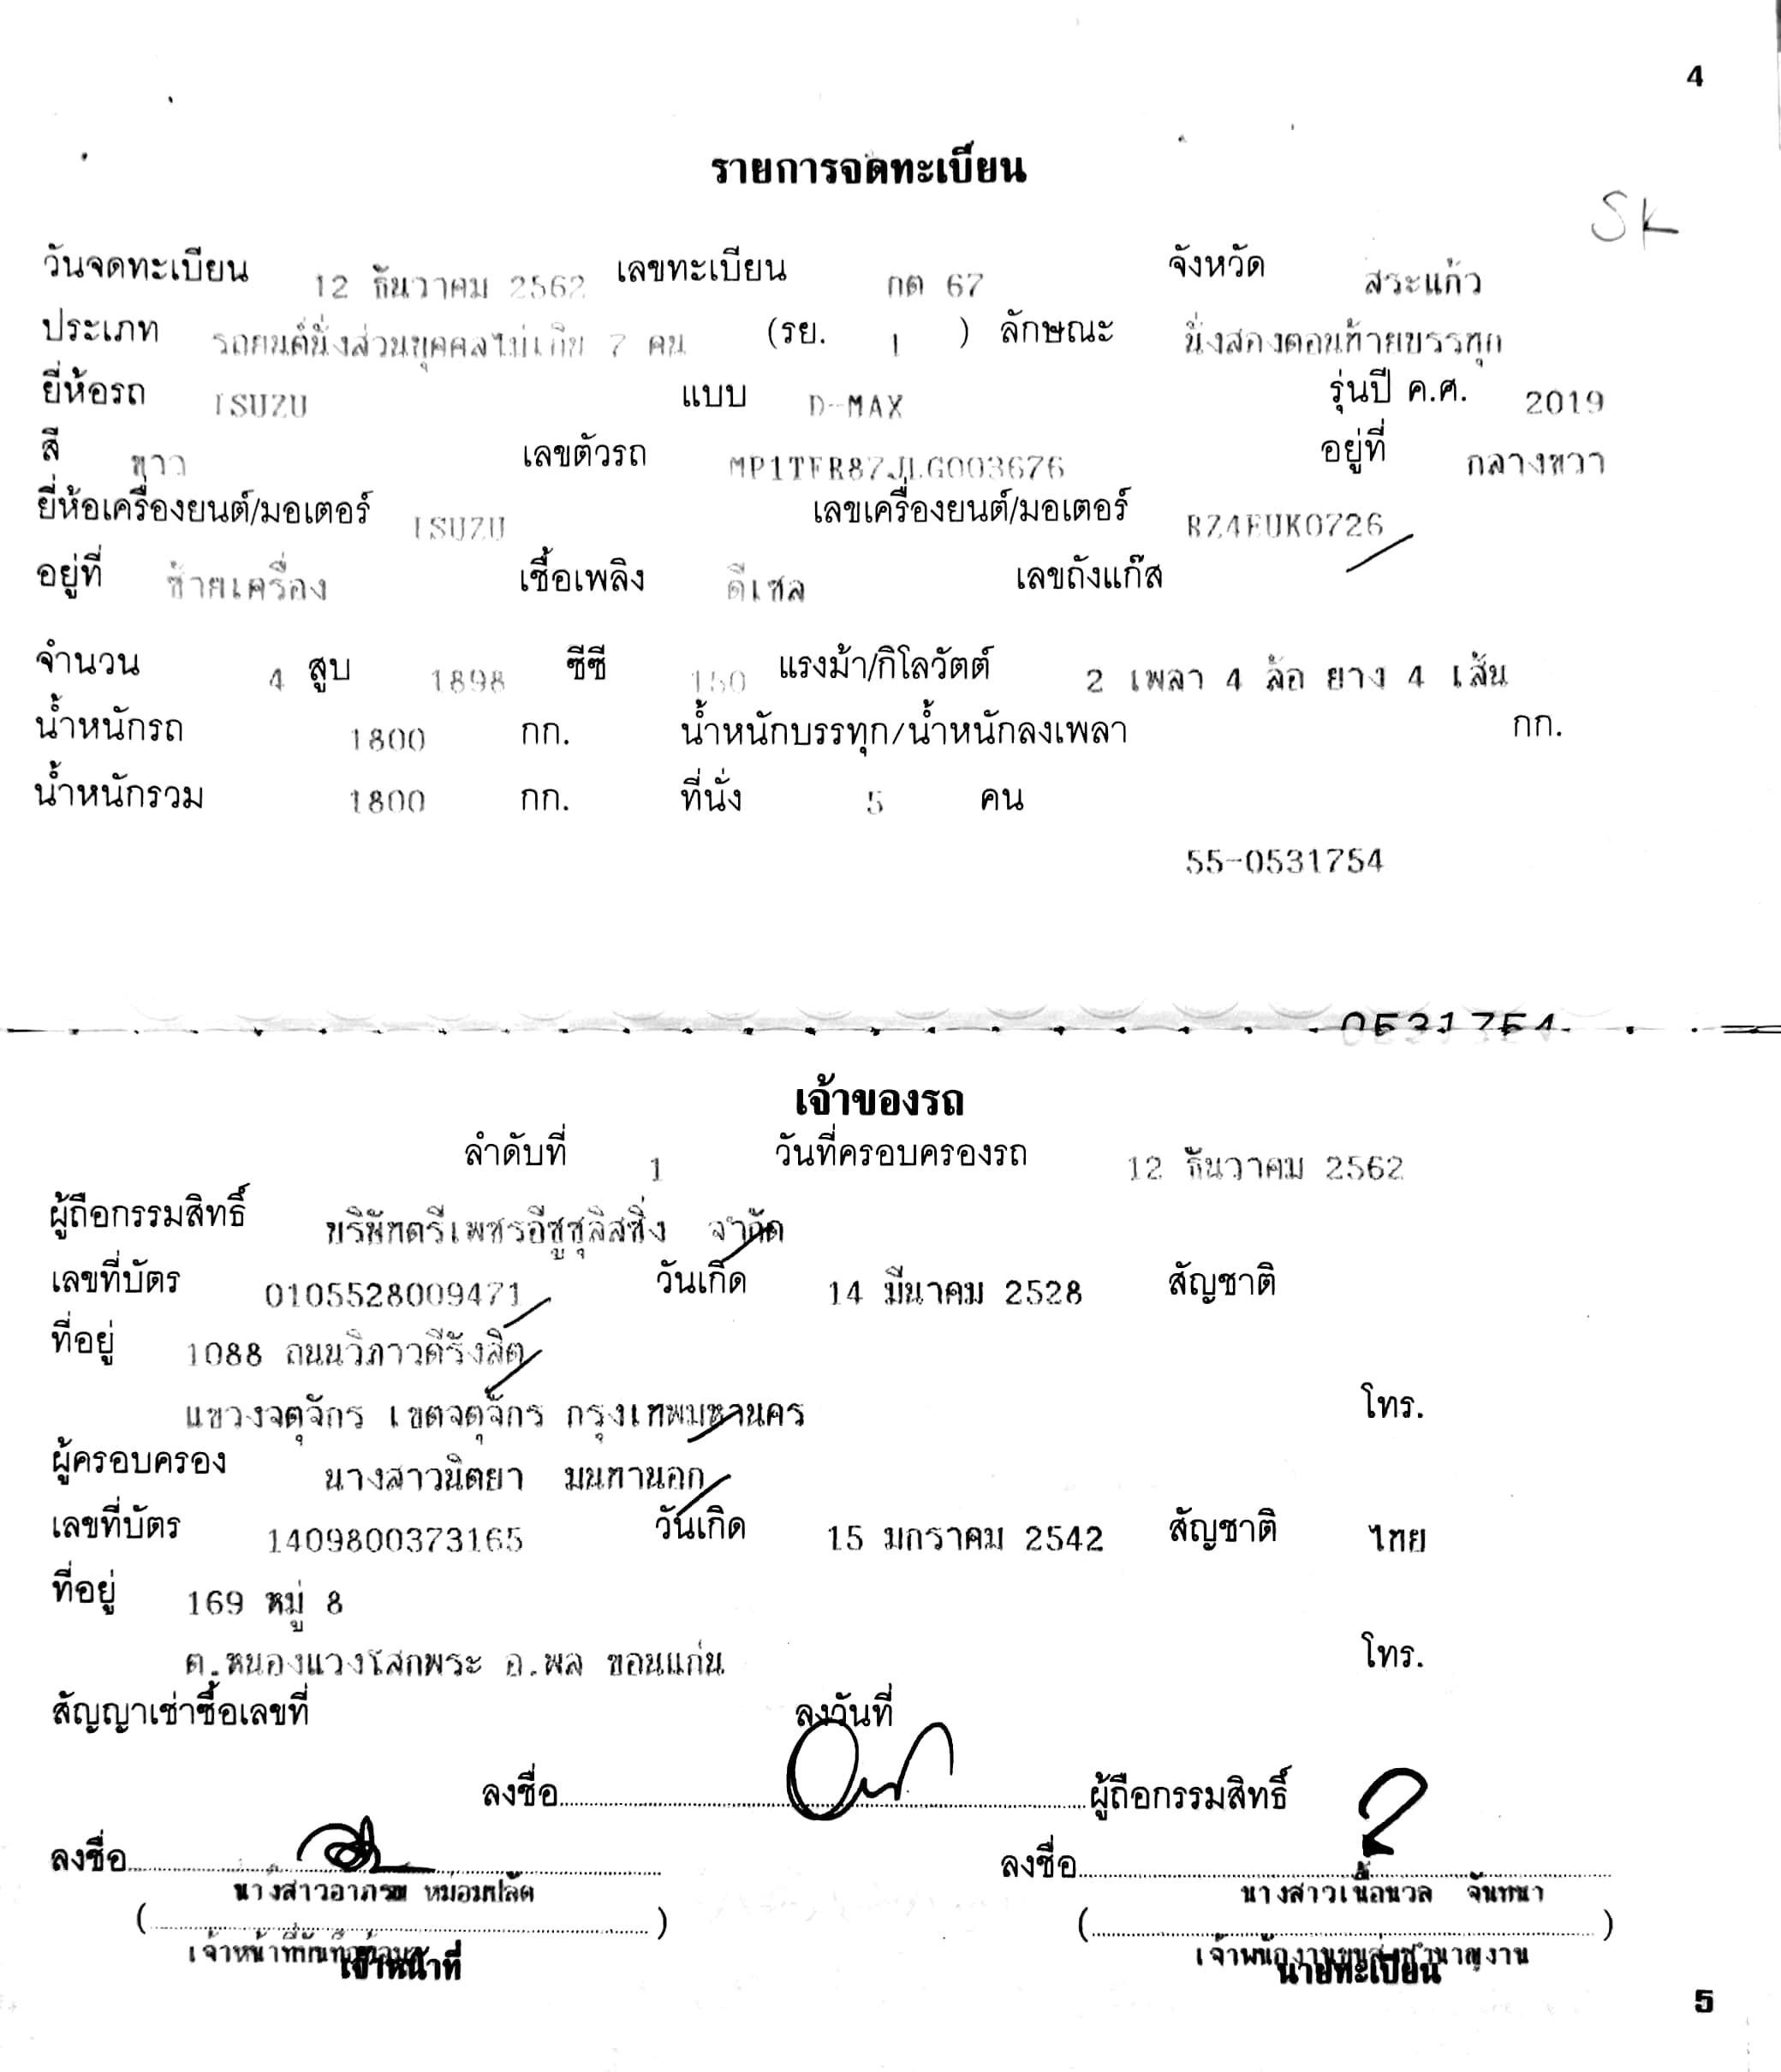 4
รายการจดทะเบียน
SK
วันจดทะเบียน 12 ธันวาคม 2562 เลขทะเบียน กต 67 จังหวัด สระแก้ว
ประเภท รถยนต์นั่งส่วนบุคคลไม่เกิน 7 คน (รย. 1 ) ลักษณะ นั่งสองตอนท้ายบรรทุก
ยี่ห้อรถ ISUZU แบบ D-MAX รุ่นปี ค.ศ. 2019
สี ขาว เลขตัวรถ MP1TFR87JLG003676 อยู่ที่ กลางขวา
ยี่ห้อเครื่องยนต์/มอเตอร์ ISUZU เลขเครื่องยนต์/มอเตอร์ RZ4EUK0726
อยู่ที่ ซ้ายเครื่อง เชื้อเพลิง ดีเซล เลขถังแก๊ส
จำนวน 4 สูบ 1898 ซีซี 150 แรงม้า/กิโลวัตต์ 2 เพลา 4 ล้อ ยาง 4 เส้น
น้ำหนักรถ 1800 กก. น้ำหนักบรรทุก/น้ำหนักลงเพลา กก.
น้ำหนักรวม 1800 กก. ที่นั่ง 5 คน
55-0531754
0531754
เจ้าของรถ
ลำดับที่ 1 วันที่ครอบครองรถ 12 ธันวาคม 2562
ผู้ถือกรรมสิทธิ์ บริษัทตรีเพชรอีซูซุลิสซิ่ง จำกัด
เลขที่บัตร 0105528009471 วันเกิด 14 มีนาคม 2528 สัญชาติ
ที่อยู่ 1088 ถนนวิภาวดีรังสิต
แขวงจตุจักร เขตจตุจักร กรุงเทพมหานคร โทร.
ผู้ครอบครอง นางสาวนิตยา มนทานอก
เลขที่บัตร 1409800373165 วันเกิด 15 มกราคม 2542 สัญชาติ ไทย
ที่อยู่ 169 หมู่ 8
ต.หนองแวงโสกพระ อ.พล ขอนแก่น โทร.
สัญญาเช่าซื้อเลขที่ ลงวันที่
ลงชื่อ ผู้ถือกรรมสิทธิ์
ลงชื่อ ลงชื่อ
นางสาวอาภรณ หม่อมปลัด นางสาวเนื้อนวล จันทนา
( ) ( )
เจ้าหน้าที่บันทึกข้อมูล เจ้าพนักงานขนส่งชำนาญงาน
เจ้าหน้าที่ นายทะเบียน
5